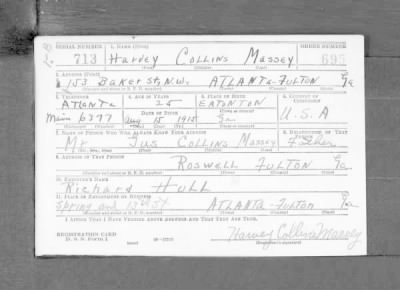 SERIAL NUMBER 713
1. NAME (Print) Harvey Collins Massey
ORDER NUMBER 695
2. ADDRESS (Print)
153 Baker St., N.W. ATLANTA-FULTON Ga
3. TELEPHONE
4. AGE IN YEARS
5. PLACE OF BIRTH
6. COUNTRY OF CITIZENSHIP
ATLANTA 25 EATONTON
DATE OF BIRTH
Main 6377 Aug 15 1915 Ga U.S.A
7. NAME OF PERSON WHO WILL ALWAYS KNOW YOUR ADDRESS
8. RELATIONSHIP OF THAT PERSON
Mr. Jus Collins Massey Father
9. ADDRESS OF THAT PERSON
ROSWELL FULTON Ga
10. EMPLOYER'S NAME
Richard Hull
11. PLACE OF EMPLOYMENT OR BUSINESS
Spring and 13th St ATLANTA-FULTON Ga
I AFFIRM THAT I HAVE VERIFIED ABOVE ANSWERS AND THAT THEY ARE TRUE.
REGISTRATION CARD
D. S. S. Form 1
Harvey Collins Massey
(Registrant's signature)